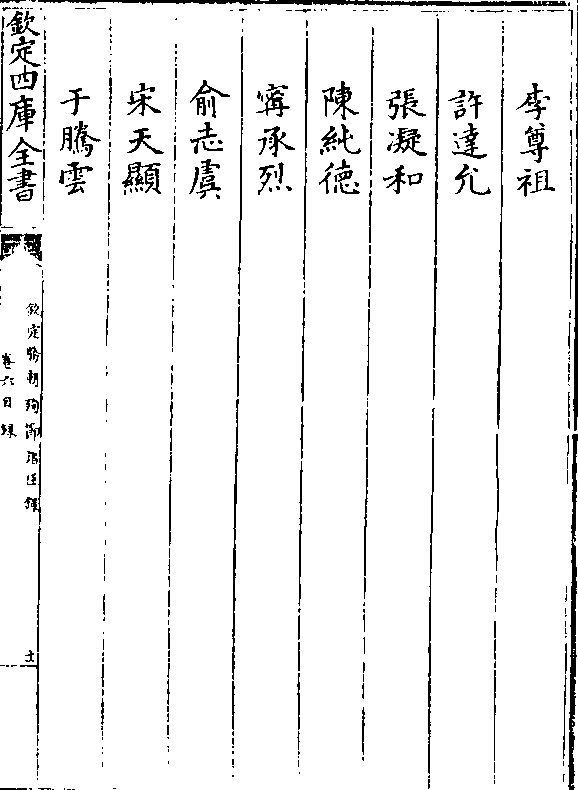 李尊祖
許達允
張凝和
陳純德
寗承烈
俞志虞
宋天顯
于騰雲
欽定四庫全書
欽定勝朝殉節諸臣錄
卷六目録
十一